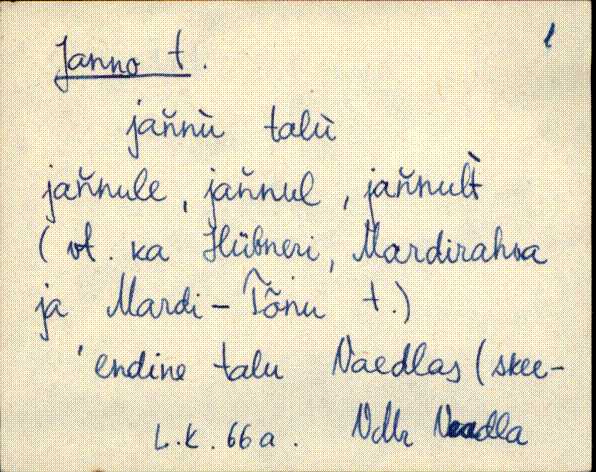 Janno t. 1
jaňnù talù
jaňnule, jaňnul, jaňnult̀
(vt. ka Hübneri, Mardirahva
ja Mardi-Tõnu t.)
'endine talu Naedlas (skee-
L.K. 66a. Ndlr Naadla